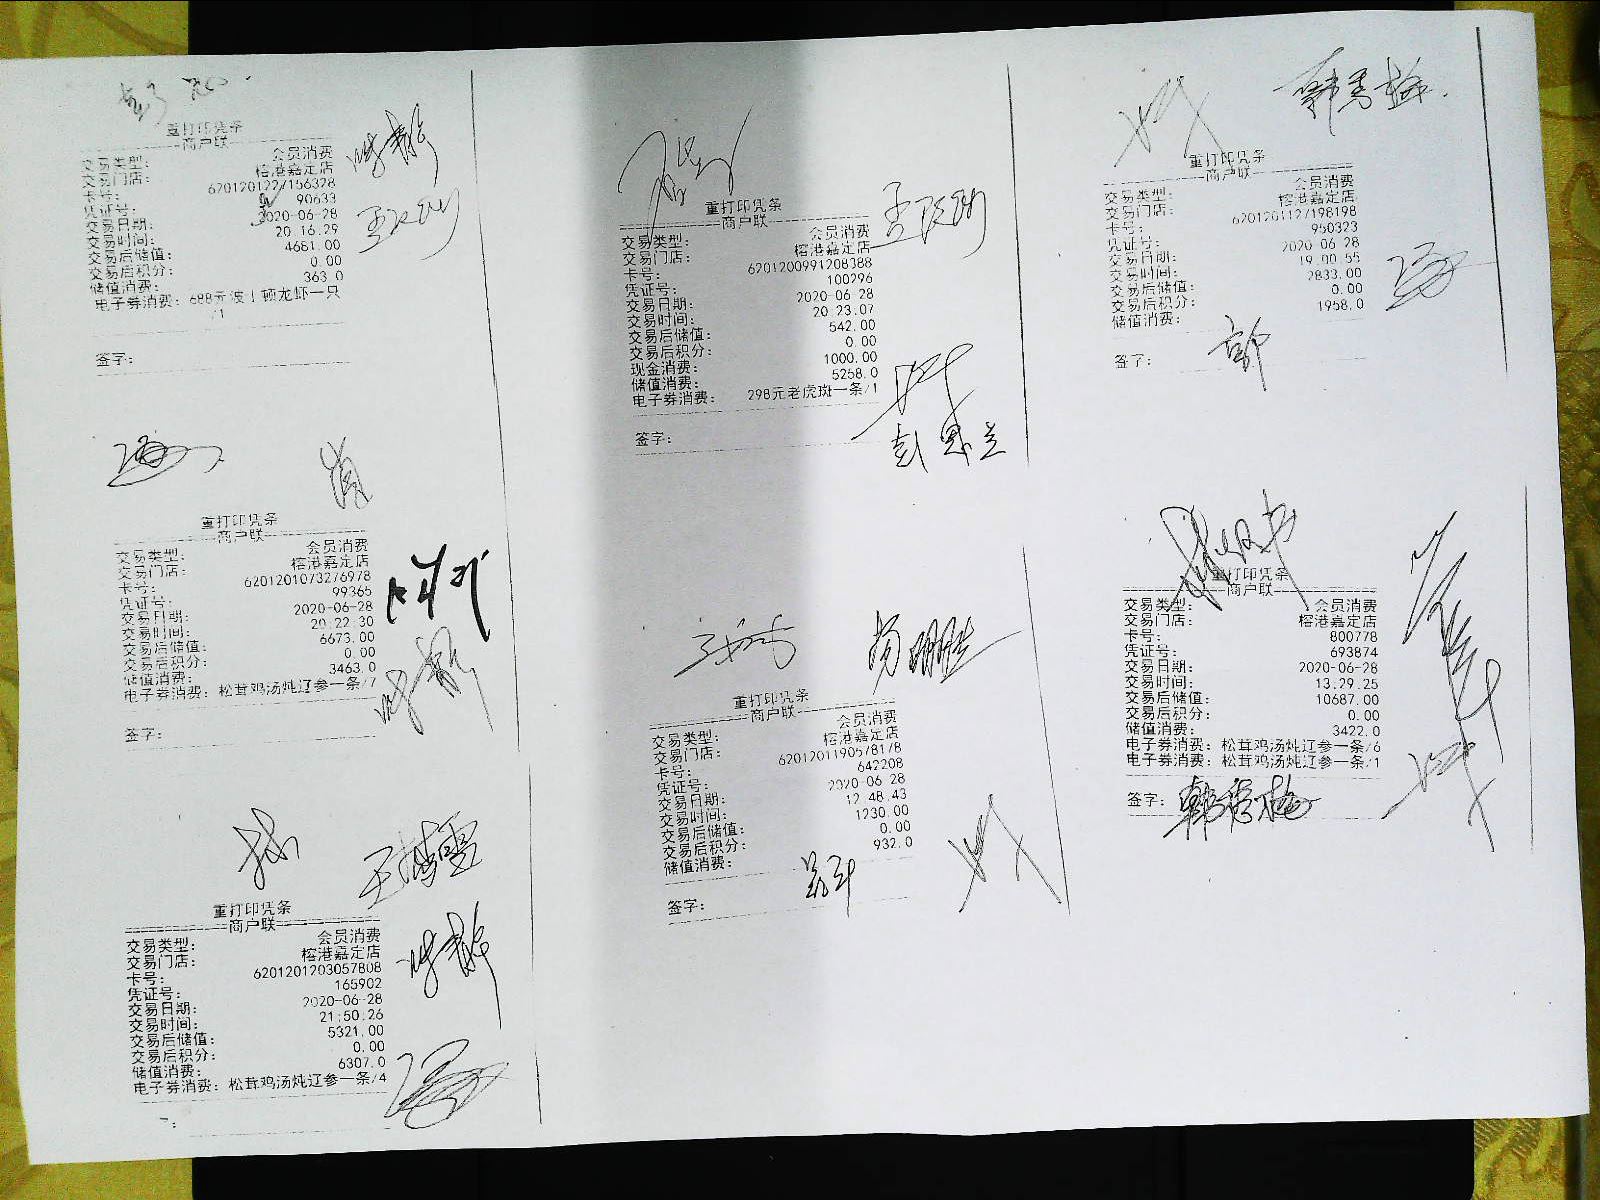 重打印凭条
商户联
交易类型： 会员消费
交易门店： 榕港嘉定店
卡号： 620120122/156328
凭证号： 90633
交易日期： 2020-06-28
交易时间： 20.16.29
交易后储值： 4681.00
交易后积分： 0.00
储值消费： 363.0
电子券消费：688元波丨顿龙虾一只
/1
签字：
重打印凭条
商户联
交易类型： 会员消费
交易门店： 榕港嘉定店
卡号： 6201201073276978
凭证号： 99365
交易日期： 2020-06-28
交易时间： 20.22.30
交易后储值： 6673.00
交易后积分： 0.00
储值消费： 3463.0
电子券消费：松茸鸡汤炖辽参一条/7
签字：
王博雪
重打印凭条
商户联
交易类型： 会员消费
交易门店： 榕港嘉定店
卡号： 6201201203057808
凭证号： 165902
交易日期： 2020-06-28
交易时间： 21:50.26
交易后储值： 5321.00
交易后积分： 0.00
储值消费： 6307.0
电子券消费：松茸鸡汤炖辽参一条/4
重打印凭条
商户联
交易类型： 会员消费
交易门店： 榕港嘉定店
卡号： 6201200991208388
凭证号： 100296
交易日期： 2020-06-28
交易时间： 20.23.07
交易后储值： 542.00
交易后积分： 0.00
现金消费： 1000.00
储值消费： 5258.0
电子券消费： 298元老虎斑一条/1
签字：
彭思兰
重打印凭条
商户联
交易类型： 会员消费
交易门店： 榕港嘉定店
卡号： 6201201190578178
凭证号： 642208
交易日期： 2020-06-28
交易时间： 12.48.43
交易后储值： 1230.00
交易后积分： 0.00
储值消费： 932.0
签字：
韩秀梅
重打印凭条
商户联
交易类型： 会员消费
交易门店： 榕港嘉定店
卡号： 6201201127198198
凭证号： 950323
交易日期： 2020-06-28
交易时间： 19.00.55
交易后储值： 2833.00
交易后积分： 0.00
储值消费： 1958.0
签字： 郭
重打印凭条
商户联
交易类型： 会员消费
交易门店： 榕港嘉定店
卡号： 800778
凭证号： 693874
交易日期： 2020-06-28
交易时间： 13.29.25
交易后储值： 10687.00
交易后积分： 0.00
储值消费： 3422.0
电子券消费：松茸鸡汤炖辽参一条/6
电子券消费：松茸鸡汤炖辽参一条/1
签字： 韩秀梅